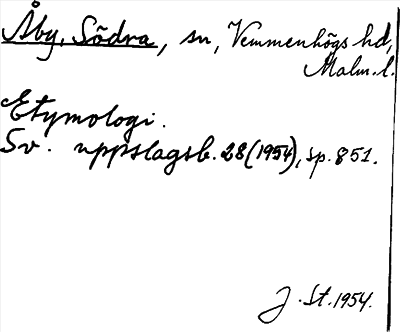 Åby, Södra, sn, Vemmenhögs hd,
Malm. l.
Etymologi.
Sv. uppslagsb. 28 (1954), sp. 851.
J. St. 1954.